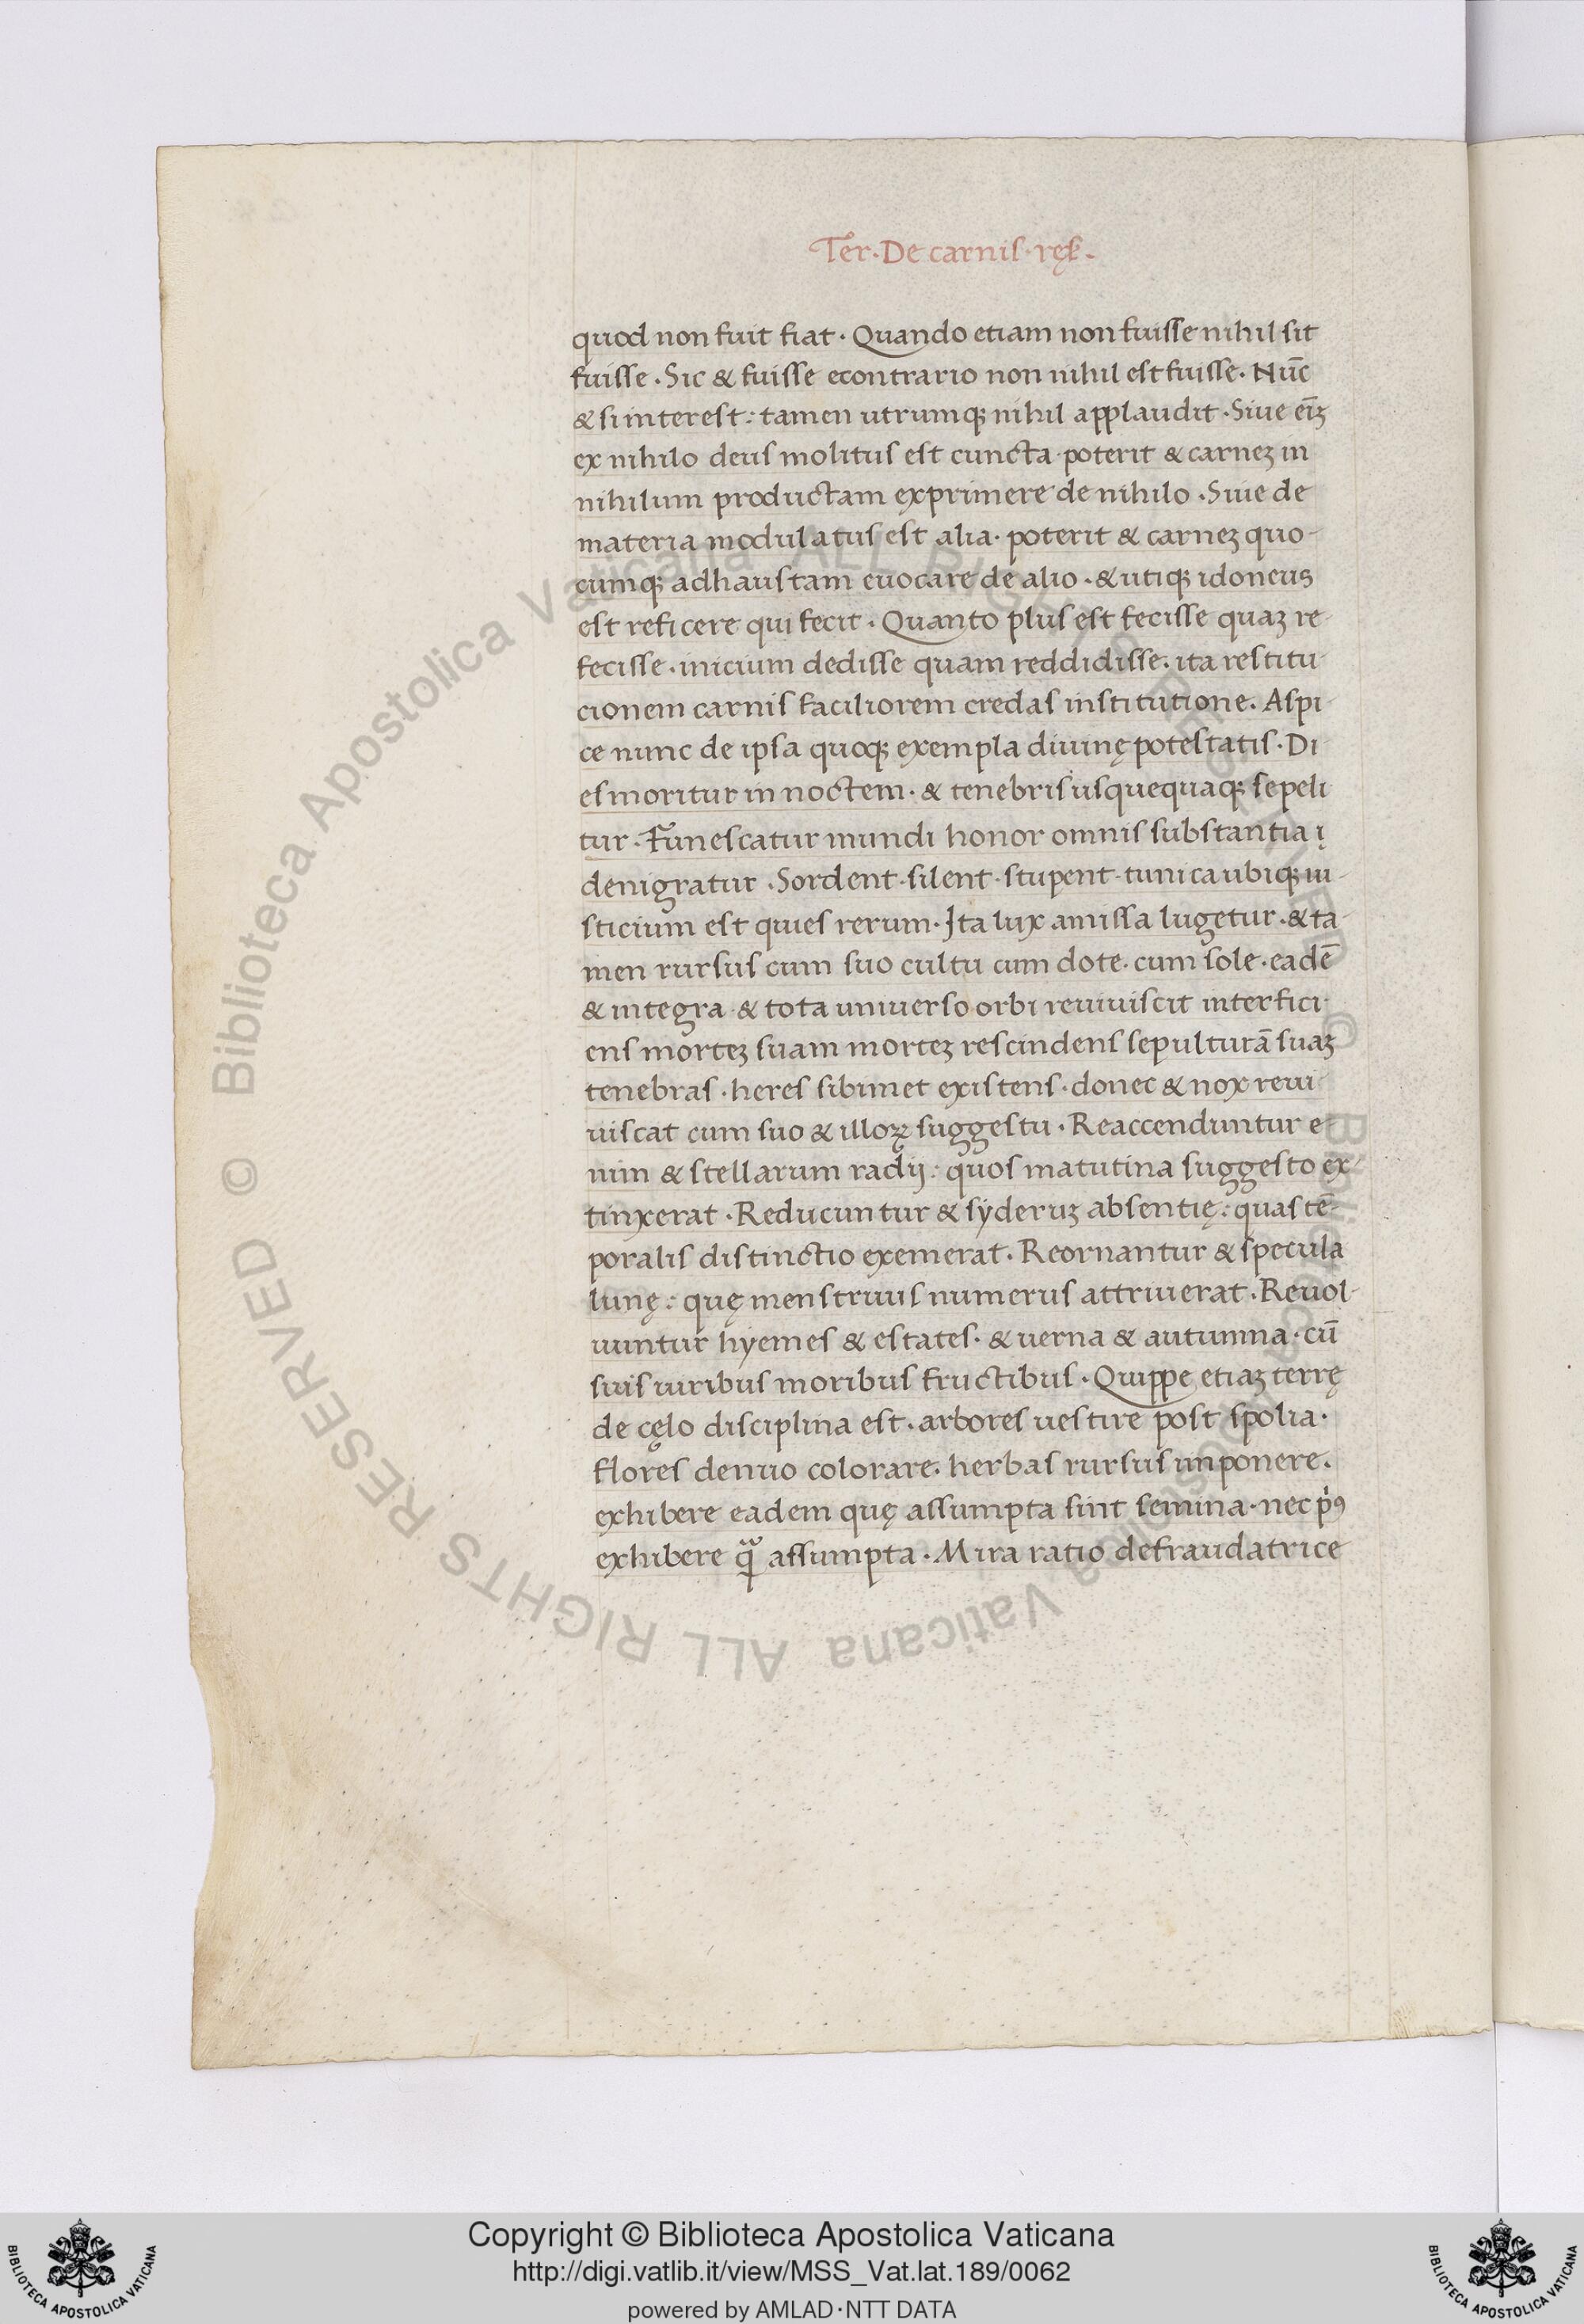 Ter · De carnis · ręſ ·
quod non fuit fiat · Quando etiam non fuisse nihil sit
fuisse · Sic & fuisse econtrario non nihil est fuisse · Nūc
& si interest : tamen utrumqꝫ nihil applaudit · Siue eīꝫ
ex nihilo deus molitus est cuncta · poterit & carneꝫ in
nihilum productam exprimere de nihilo · Siue de
materia modulatus est alia · poterit & carneꝫ quo-
cumqꝫ adhaustam euocare de alio · & utiqꝫ idoneus
est reficere qui fecit · Quanto plus est fecisse quaꝫ re-
fecisse · inicium dedisse quam reddidisse · ita restitu-
cionem carnis faciliorem credas institutione. Aspi-
ce nunc de ipsa quoqꝫ exempla diuinę potestatis · Di-
es moritur in noctem · & tenebris usquequaqꝫ sepeli
tur · Funescatur mundi honor omnis substantia
denigratur · Sordent · silent · stupent · tunica ubiqꝫ iu-
sticium est quies rerum · Ita lux amissa lugetur · & ta-
men rursus cum suo cultu cum dote · cum sole · eadē
& integra · & tota uniuerso orbi reuiuiscit interfici-
ens morteꝫ suam morteꝫ rescindens sepulturā suaꝫ
tenebras · heres sibimet existens · donec & nox reui-
uiscat cum suo & illoꝝ suggestu · Reaccenduntur e-
nim & stellarum radij : quos matutina suggesto ex-
tinxerat · Reducuntur & syderuꝫ absentię : quas tē-
poralis distinctio exemerat · Reornantur & specula
lunę : quę menstruus numerus attriuerat · Reuol-
uuntur hyemes & estates · & uerna & autumna · cū
suis uiribus moribus fructibus · Quippe etiaꝫ terrę
de cęlo disciplina est · arbores uestire post spolia ·
flores denuo colorare · herbas rursus imponere ·
exhibere eadem quę assumpta sint semina · nec pꝰ
exhibere q̄ assumpta · Mira ratio defraudatrice
© Biblioteca Apostolica Vaticana ALL RIGHTS RESERVED © Biblioteca Apostolica Vaticana ALL RIGHTS RESERVED
Copyright © Biblioteca Apostolica Vaticana
http://digi.vatlib.it/view/MSS_Vat.lat.189/0062
powered by AMLAD·NTT DATA
BIBLIOTECA APOSTOLICA VATICANA
BIBLIOTECA APOSTOLICA VATICANA